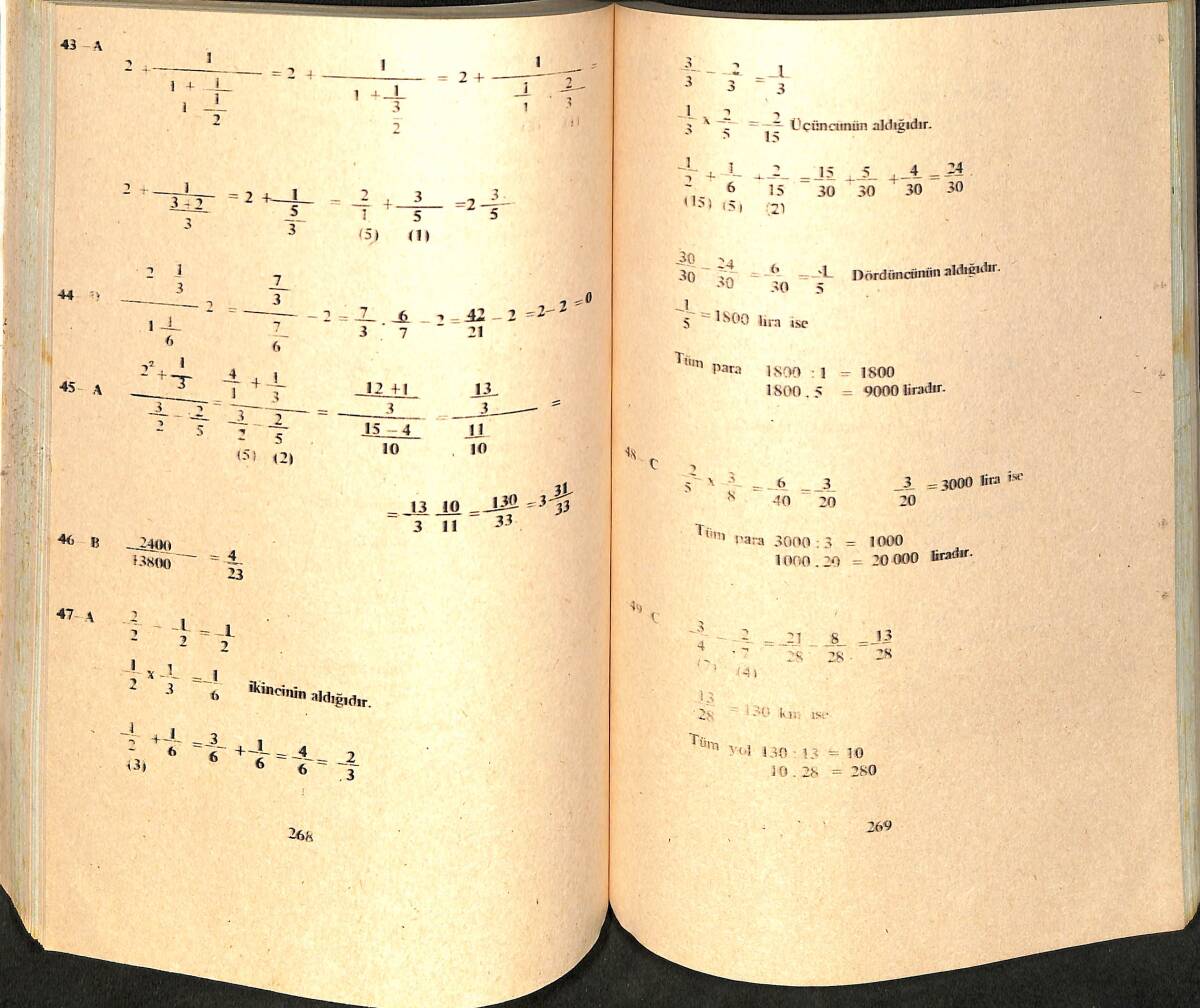 43 – A
2 + 1/(1 + 1/(1 1/2)) = 2 + 1/(1 + 1/(3/2)) = 2 + 1/(1/1 . 2/3) =
(3) (1)
2 + 1/((3+2)/3) = 2 + 1/(5/3) = 2/1 + 3/5 = 2 3/5
(5) (1)
44 –
(2 1/3)/(1 1/6) 2 = (7/3)/(7/6) – 2 = 7/3 . 6/7 – 2 = 42/21 – 2 = 2 – 2 = 0
45 – A
(2² + 1/3)/(3/2 – 2/5) = (4/1 + 1/3)/(3/2 – 2/5) = ((12 +1)/3)/((15 – 4)/10) = (13/3)/(11/10) =
(5) (2)
= 13/3 10/11 = 130/33 = 3 31/33
46 – B
2400/13800 = 4/23
47 – A
2/2 – 1/2 = 1/2
1/2 x 1/3 = 1/6 ikincinin aldığıdır.
1/2 + 1/6 = 3/6 + 1/6 = 4/6 = 2/3
(3)
268
3/3 – 2/3 = 1/3
1/3 x 2/5 = 2/15 Üçüncünün aldığıdır.
1/2 + 1/6 + 2/15 = 15/30 + 5/30 + 4/30 = 24/30
(15) (5) (2)
30/30 – 24/30 = 6/30 = 1/5 Dördüncünün aldığıdır.
1/5 = 1800 lira ise
Tüm para 1800 : 1 = 1800
1800 . 5 = 9000 liradır.
48 – C
2/5 x 3/8 = 6/40 = 3/20 3/20 = 3000 lira ise
Tüm para 3000 : 3 = 1000
1000 . 20 = 20 000 liradır.
49 C
3/4 – 2/7 = 21/28 – 8/28 = 13/28
(7) (4)
13/28 = 130 km ise
Tüm yol 130 : 13 = 10
10 . 28 = 280
269